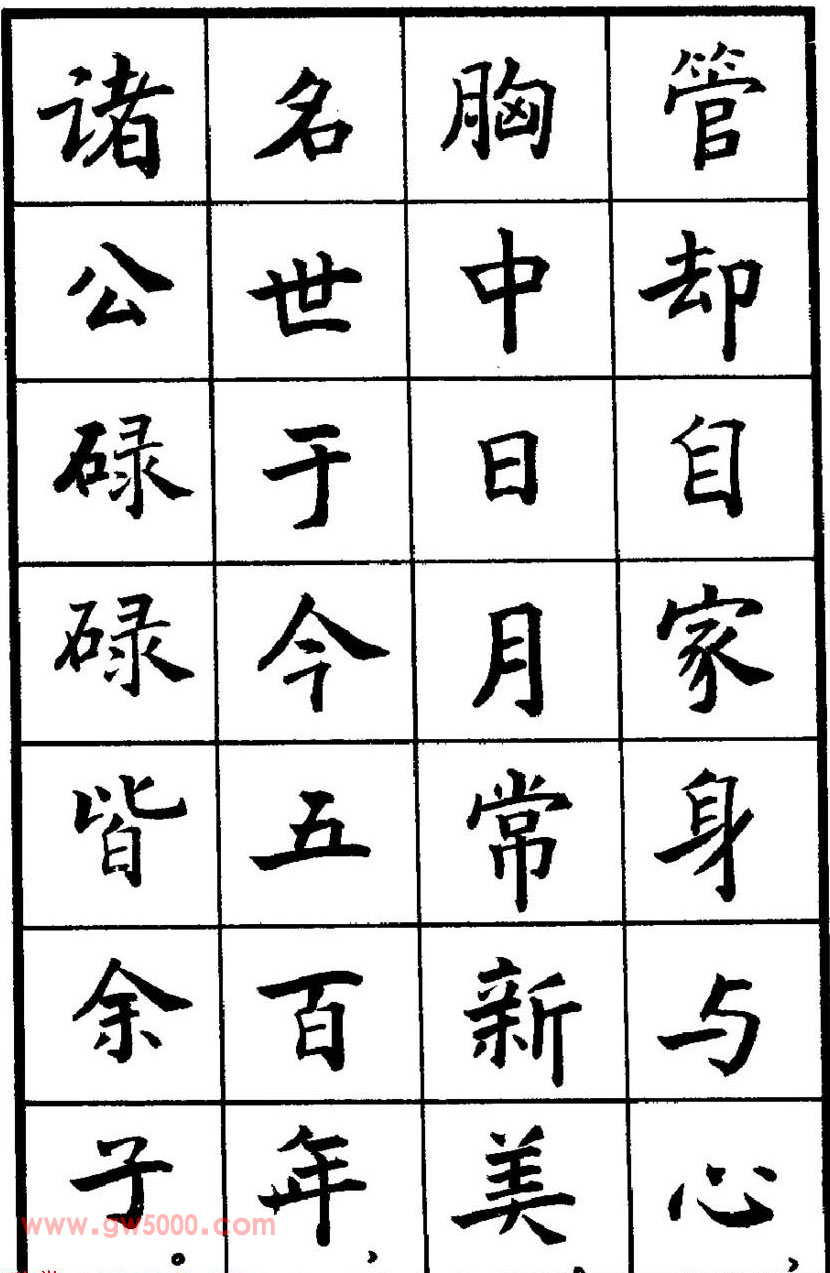 管却自家身与心,
胸中日月常新美
名世于今五百年,
诸公碌碌皆余子。
www.gw5000.com